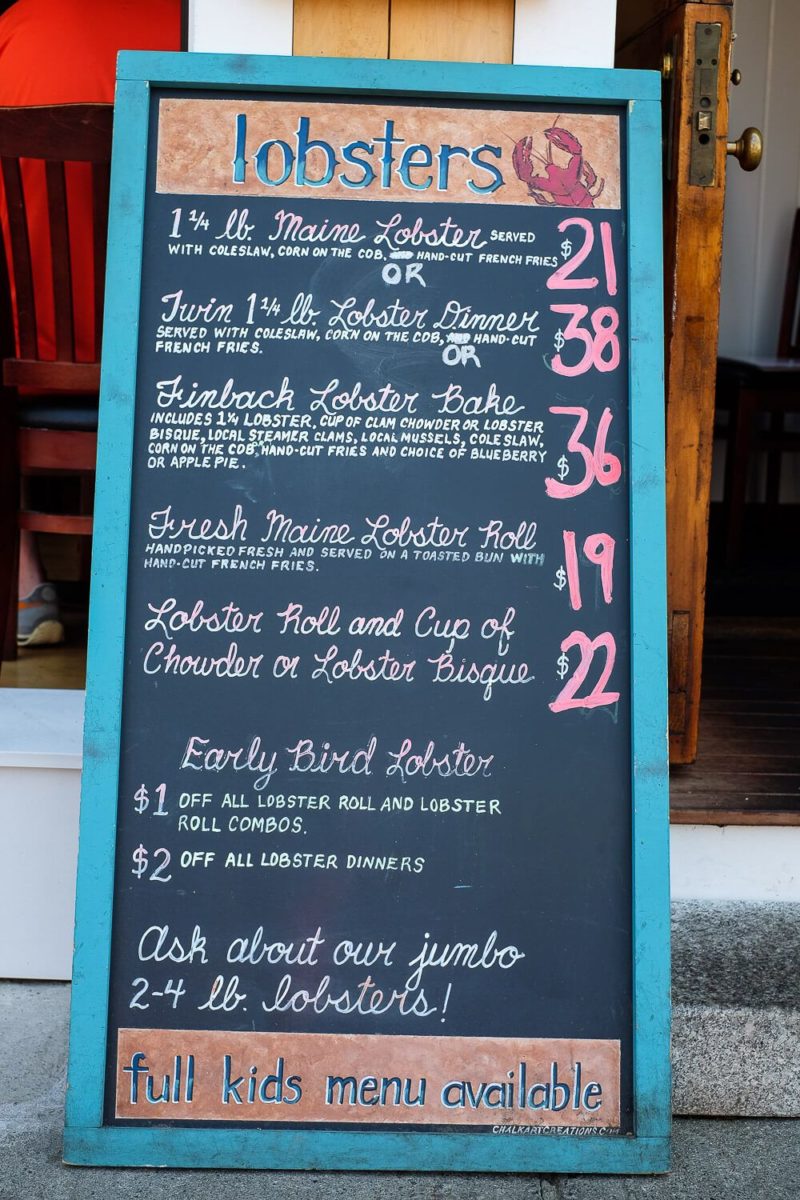 lobsters
1 1/4 lb. Maine Lobster SERVED
WITH COLESLAW, CORN ON THE COB, HAND-CUT FRENCH FRIES
$21
OR
Twin 1 1/4 lb. Lobster Dinner
SERVED WITH COLESLAW, CORN ON THE COB, HAND-CUT
FRENCH FRIES.
$38
OR
Finback Lobster Bake
INCLUDES 1 1/4 LOBSTER, CUP OF CLAM CHOWDER OR LOBSTER
BISQUE, LOCAL STEAMER CLAMS, LOCAL MUSSELS, COLESLAW,
CORN ON THE COB, HAND-CUT FRIES AND CHOICE OF BLUEBERRY
OR APPLE PIE.
$36
Fresh Maine Lobster Roll
HANDPICKED FRESH AND SERVED ON A TOASTED BUN WITH
HAND-CUT FRENCH FRIES.
$19
Lobster Roll and Cup of
Chowder or Lobster Bisque
$22
Early Bird Lobster
$1 OFF ALL LOBSTER ROLL AND LOBSTER
ROLL COMBOS.
$2 OFF ALL LOBSTER DINNERS
Ask about our jumbo
2-4 lb. lobsters!
full kids menu available
CHALKARTCREATIONS.COM